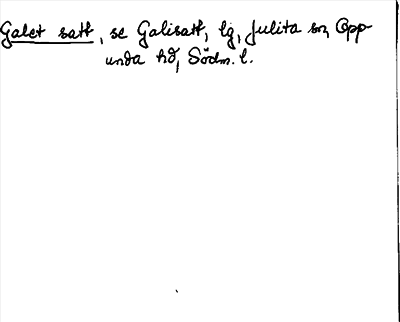 Galet satt, se Galisatt, lg, Julita sn, Opp-
unda hd, Södm. l.